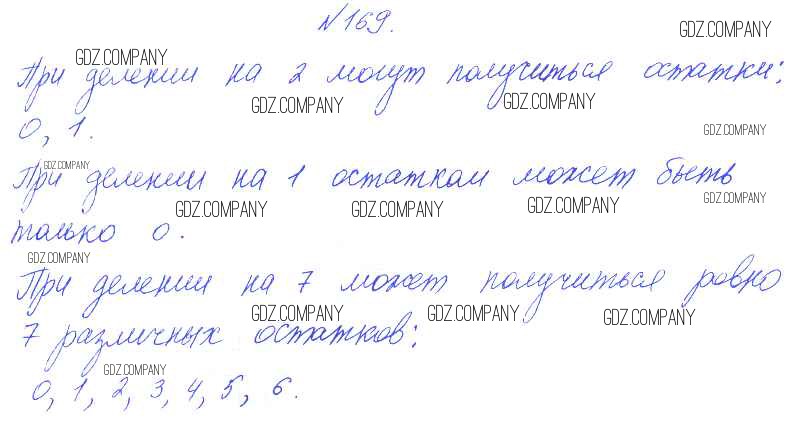 №169.
GDZ.COMPANY
GDZ.COMPANY
При делении на 2 могут получиться остатки:
GDZ.COMPANY
GDZ.COMPANY
0, 1.
GDZ.COMPANY
GDZ.COMPANY
При делении на 1 остатком может быть
GDZ.COMPANY
GDZ.COMPANY
GDZ.COMPANY
GDZ.COMPANY
только 0.
GDZ.COMPANY
При делении на 7 может получиться ровно
GDZ.COMPANY
GDZ.COMPANY
GDZ.COMPANY
7 различных остатков:
GDZ.COMPANY
0, 1, 2, 3, 4, 5, 6.